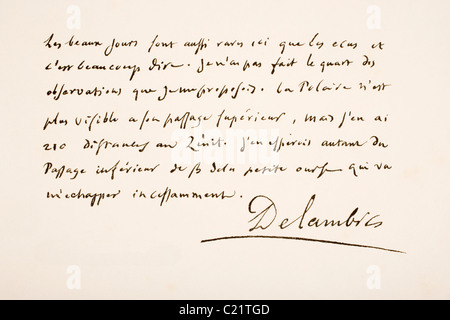 Les beaux jours sont aussi rares ici que les ecus et
c'est beaucoup dire. Je n'ai pas fait le quart des
observations que je me proposois. La Polaire n'est
plus visible a son passage supérieur, mais j'en ai
210 distances au Zénit. J'en espérois autant du
Passage inférieur de β de la petite ourse qui va
m'echapper incessamment.
Delambre
alamy
Image ID: C21TGD
www.alamy.com